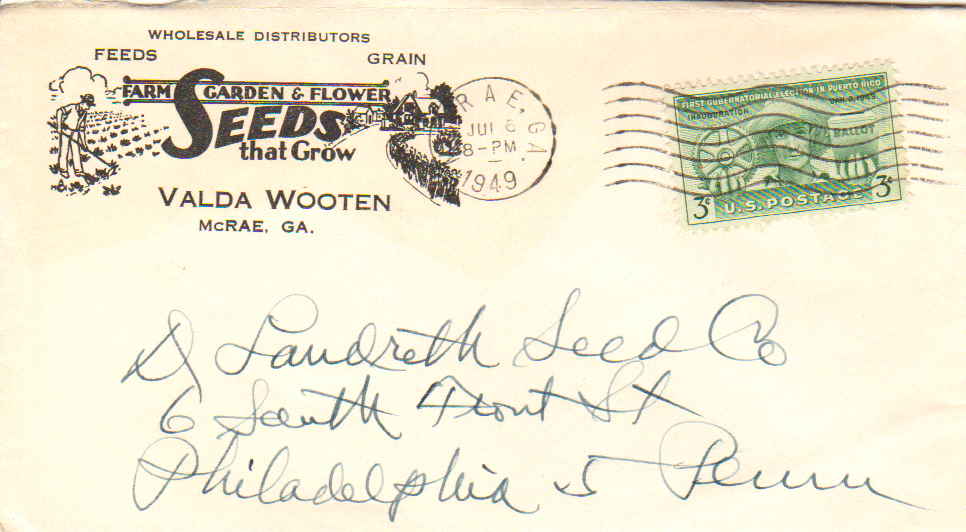 WHOLESALE DISTRIBUTORS
FEEDS GRAIN
FARM GARDEN & FLOWER
SEEDS
that Grow
VALDA WOOTEN
McRAE, GA.
RAE, GA.
JUL 6
8-PM
1949
FIRST GUBERNATORIAL ELECTION IN PUERTO RICO
INAUGURATION JAN. 2, 1949
BALLOT
3¢ U.S. POSTAGE 3¢
D Landreth Seed Co
6 South Front St
Philadelphia 5 Penn